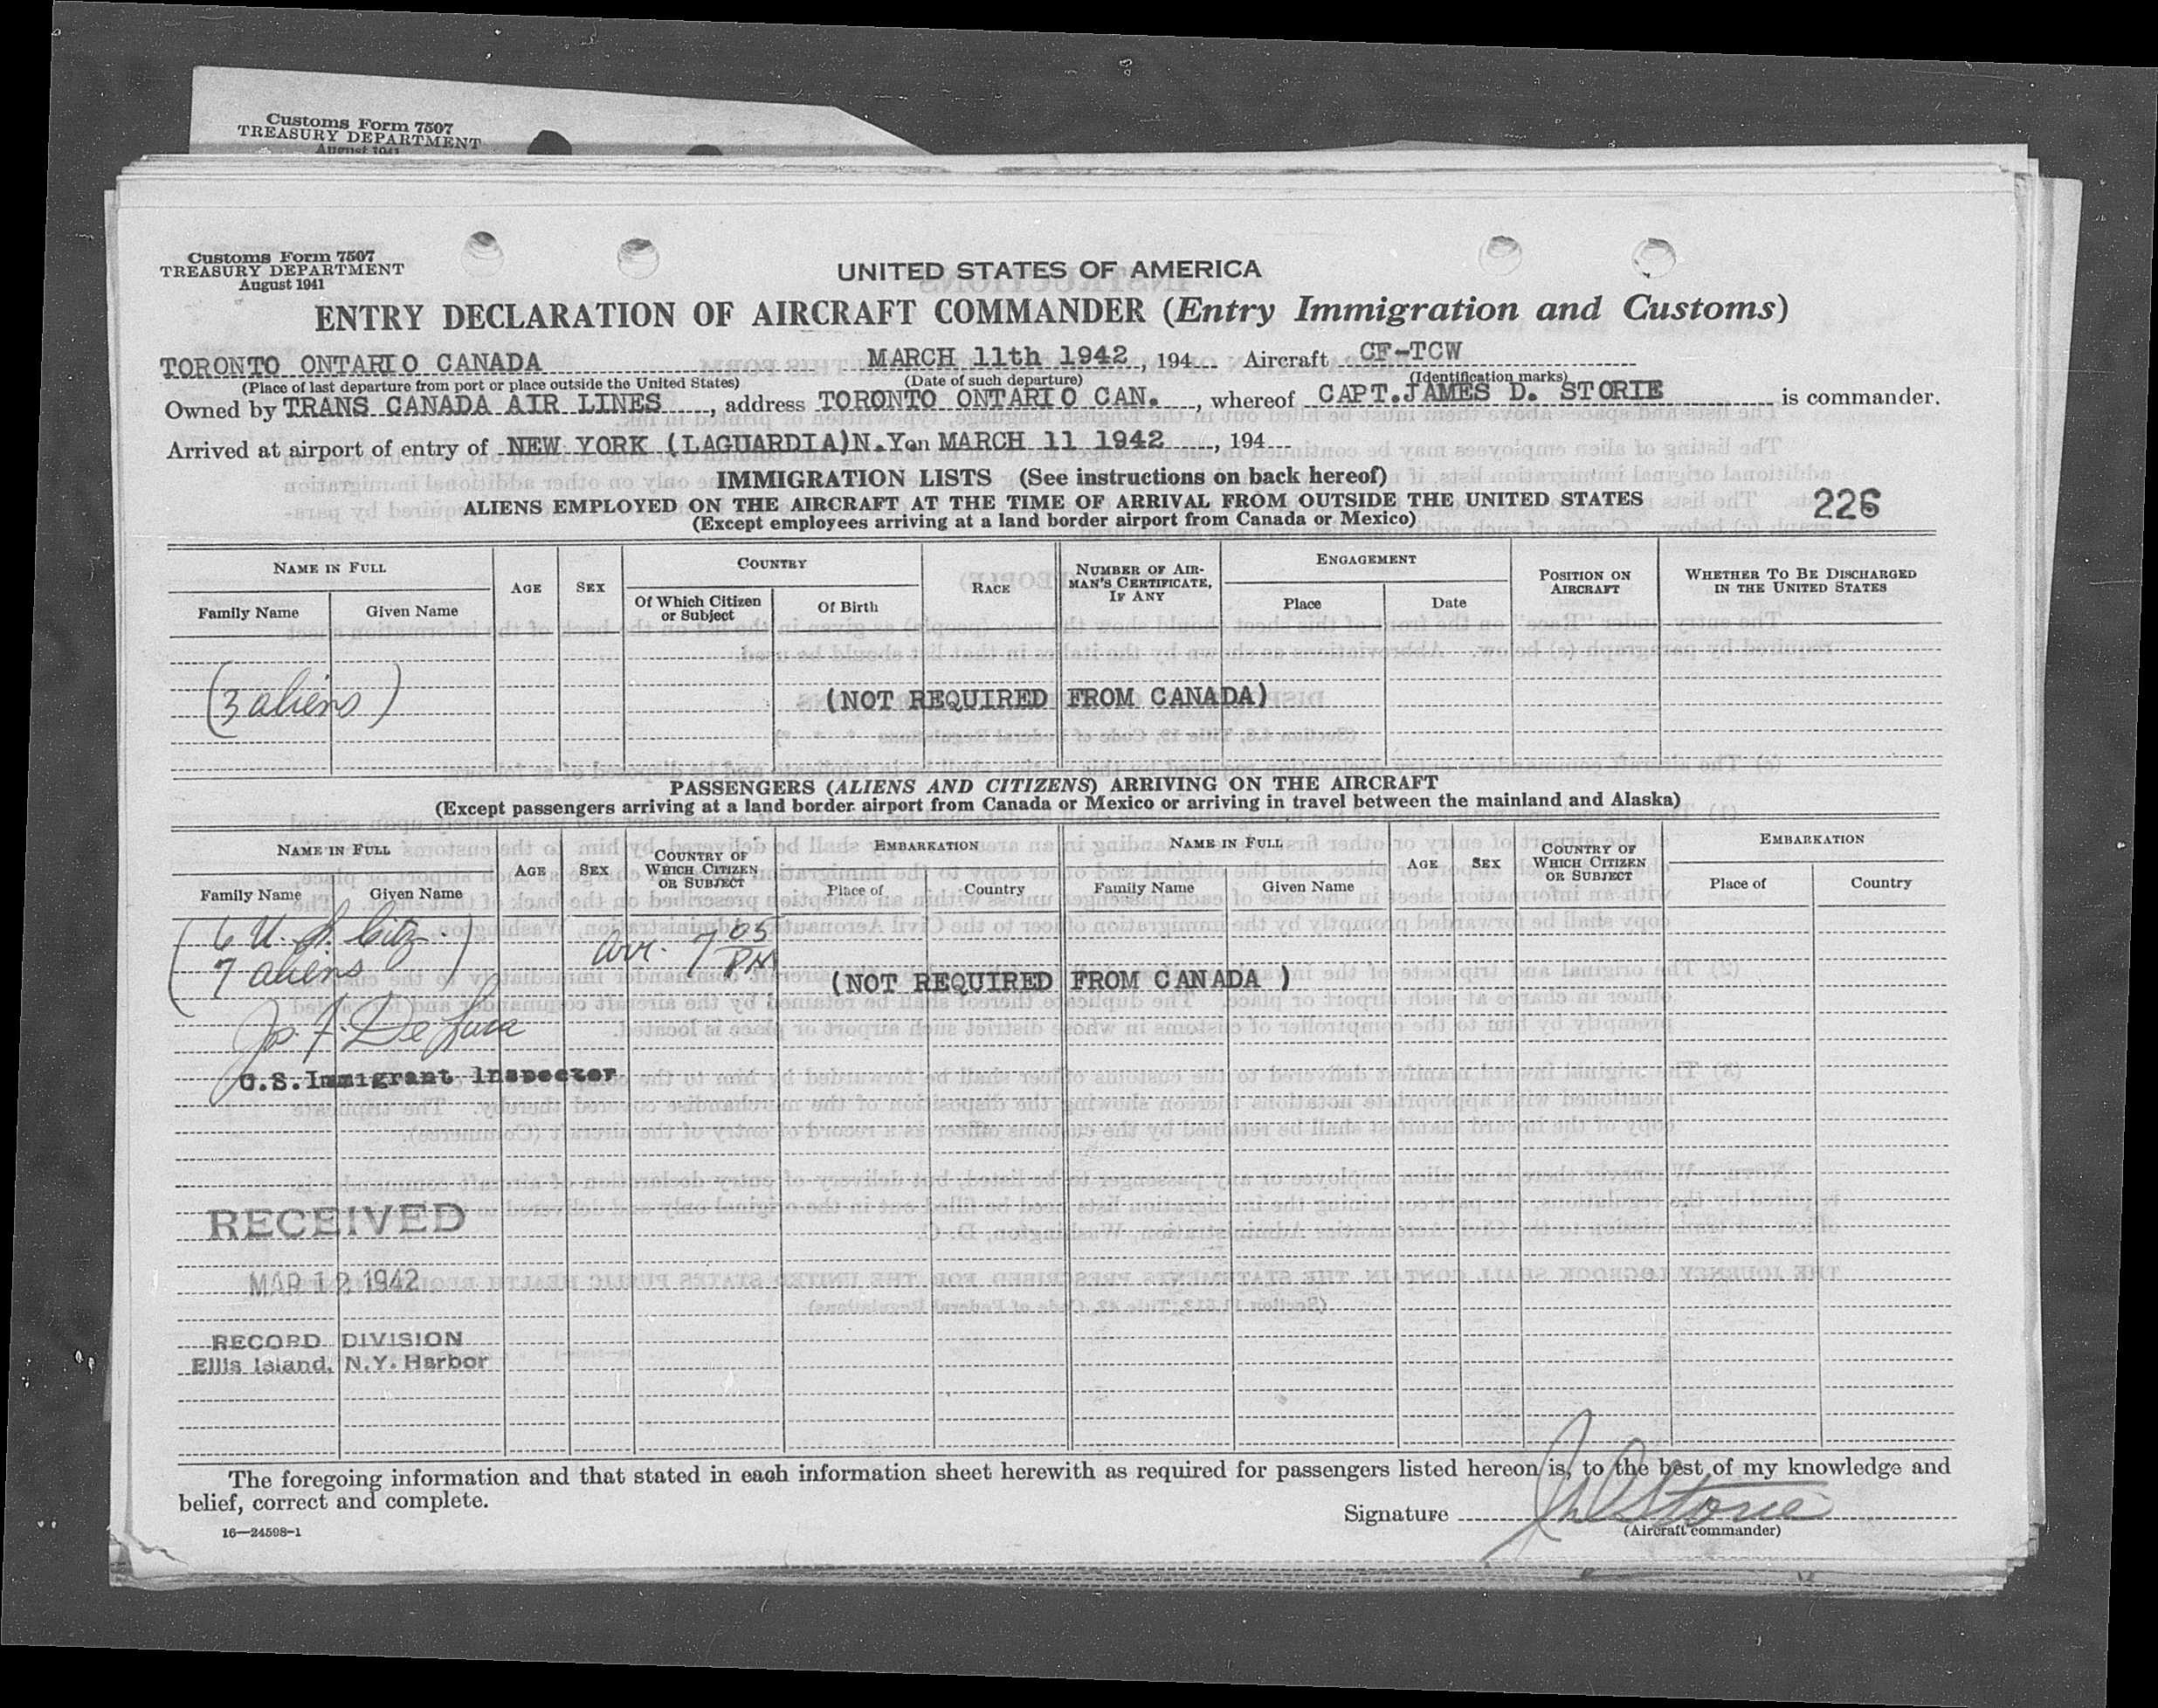 Customs Form 7507
TREASURY DEPARTMENT
August 1941
Customs Form 7507
TREASURY DEPARTMENT
August 1941
UNITED STATES OF AMERICA
ENTRY DECLARATION OF AIRCRAFT COMMANDER (Entry Immigration and Customs)
TORONTO ONTARIO CANADA MARCH 11th 1942, 194 Aircraft CF-TCW
(Place of last departure from port or place outside the United States) (Date of such departure) (Identification marks)
Owned by TRANS CANADA AIR LINES, address TORONTO ONTARIO CAN., whereof CAPT.JAMES D. STORIE is commander.
Arrived at airport of entry of NEW YORK (LAGUARDIA)N.Y. on MARCH 11 1942, 194
IMMIGRATION LISTS (See instructions on back hereof)
ALIENS EMPLOYED ON THE AIRCRAFT AT THE TIME OF ARRIVAL FROM OUTSIDE THE UNITED STATES 226
(Except employees arriving at a land border airport from Canada or Mexico)
NAME IN FULL AGE SEX COUNTRY RACE NUMBER OF AIRMAN'S CERTIFICATE, IF ANY ENGAGEMENT POSITION ON AIRCRAFT WHETHER TO BE DISCHARGED IN THE UNITED STATES
Family Name Given Name Of Which Citizen or Subject Of Birth Place Date
(3 aliens) (NOT REQUIRED FROM CANADA)
PASSENGERS (ALIENS AND CITIZENS) ARRIVING ON THE AIRCRAFT
(Except passengers arriving at a land border airport from Canada or Mexico or arriving in travel between the mainland and Alaska)
NAME IN FULL AGE SEX COUNTRY OF WHICH CITIZEN OR SUBJECT EMBARKATION NAME IN FULL AGE SEX COUNTRY OF WHICH CITIZEN OR SUBJECT EMBARKATION
Family Name Given Name Place of Country Family Name Given Name Place of Country
(6 U.S. Citz. Arr. 7 05 PM
7 aliens) (NOT REQUIRED FROM CANADA )
Jos. F. De Luca
U.S.Immigrant Inspector
RECEIVED
MAR 12 1942
RECORD DIVISION
Ellis Island, N.Y. Harbor
The foregoing information and that stated in each information sheet herewith as required for passengers listed hereon is, to the best of my knowledge and
belief, correct and complete.
Signature JDStorie
16—24598-1 (Aircraft commander)